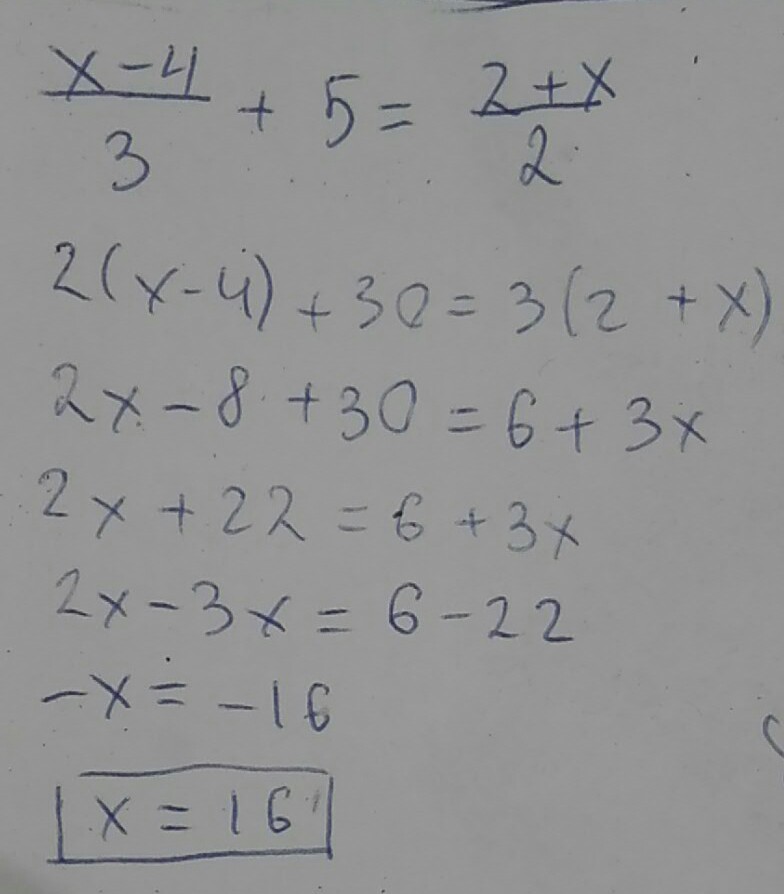 (x-4)/3 + 5 = (2+x)/2
2(x-4) + 30 = 3(2 + x)
2x - 8 + 30 = 6 + 3x
2x + 22 = 6 + 3x
2x - 3x = 6 - 22
-x = -16
x = 16